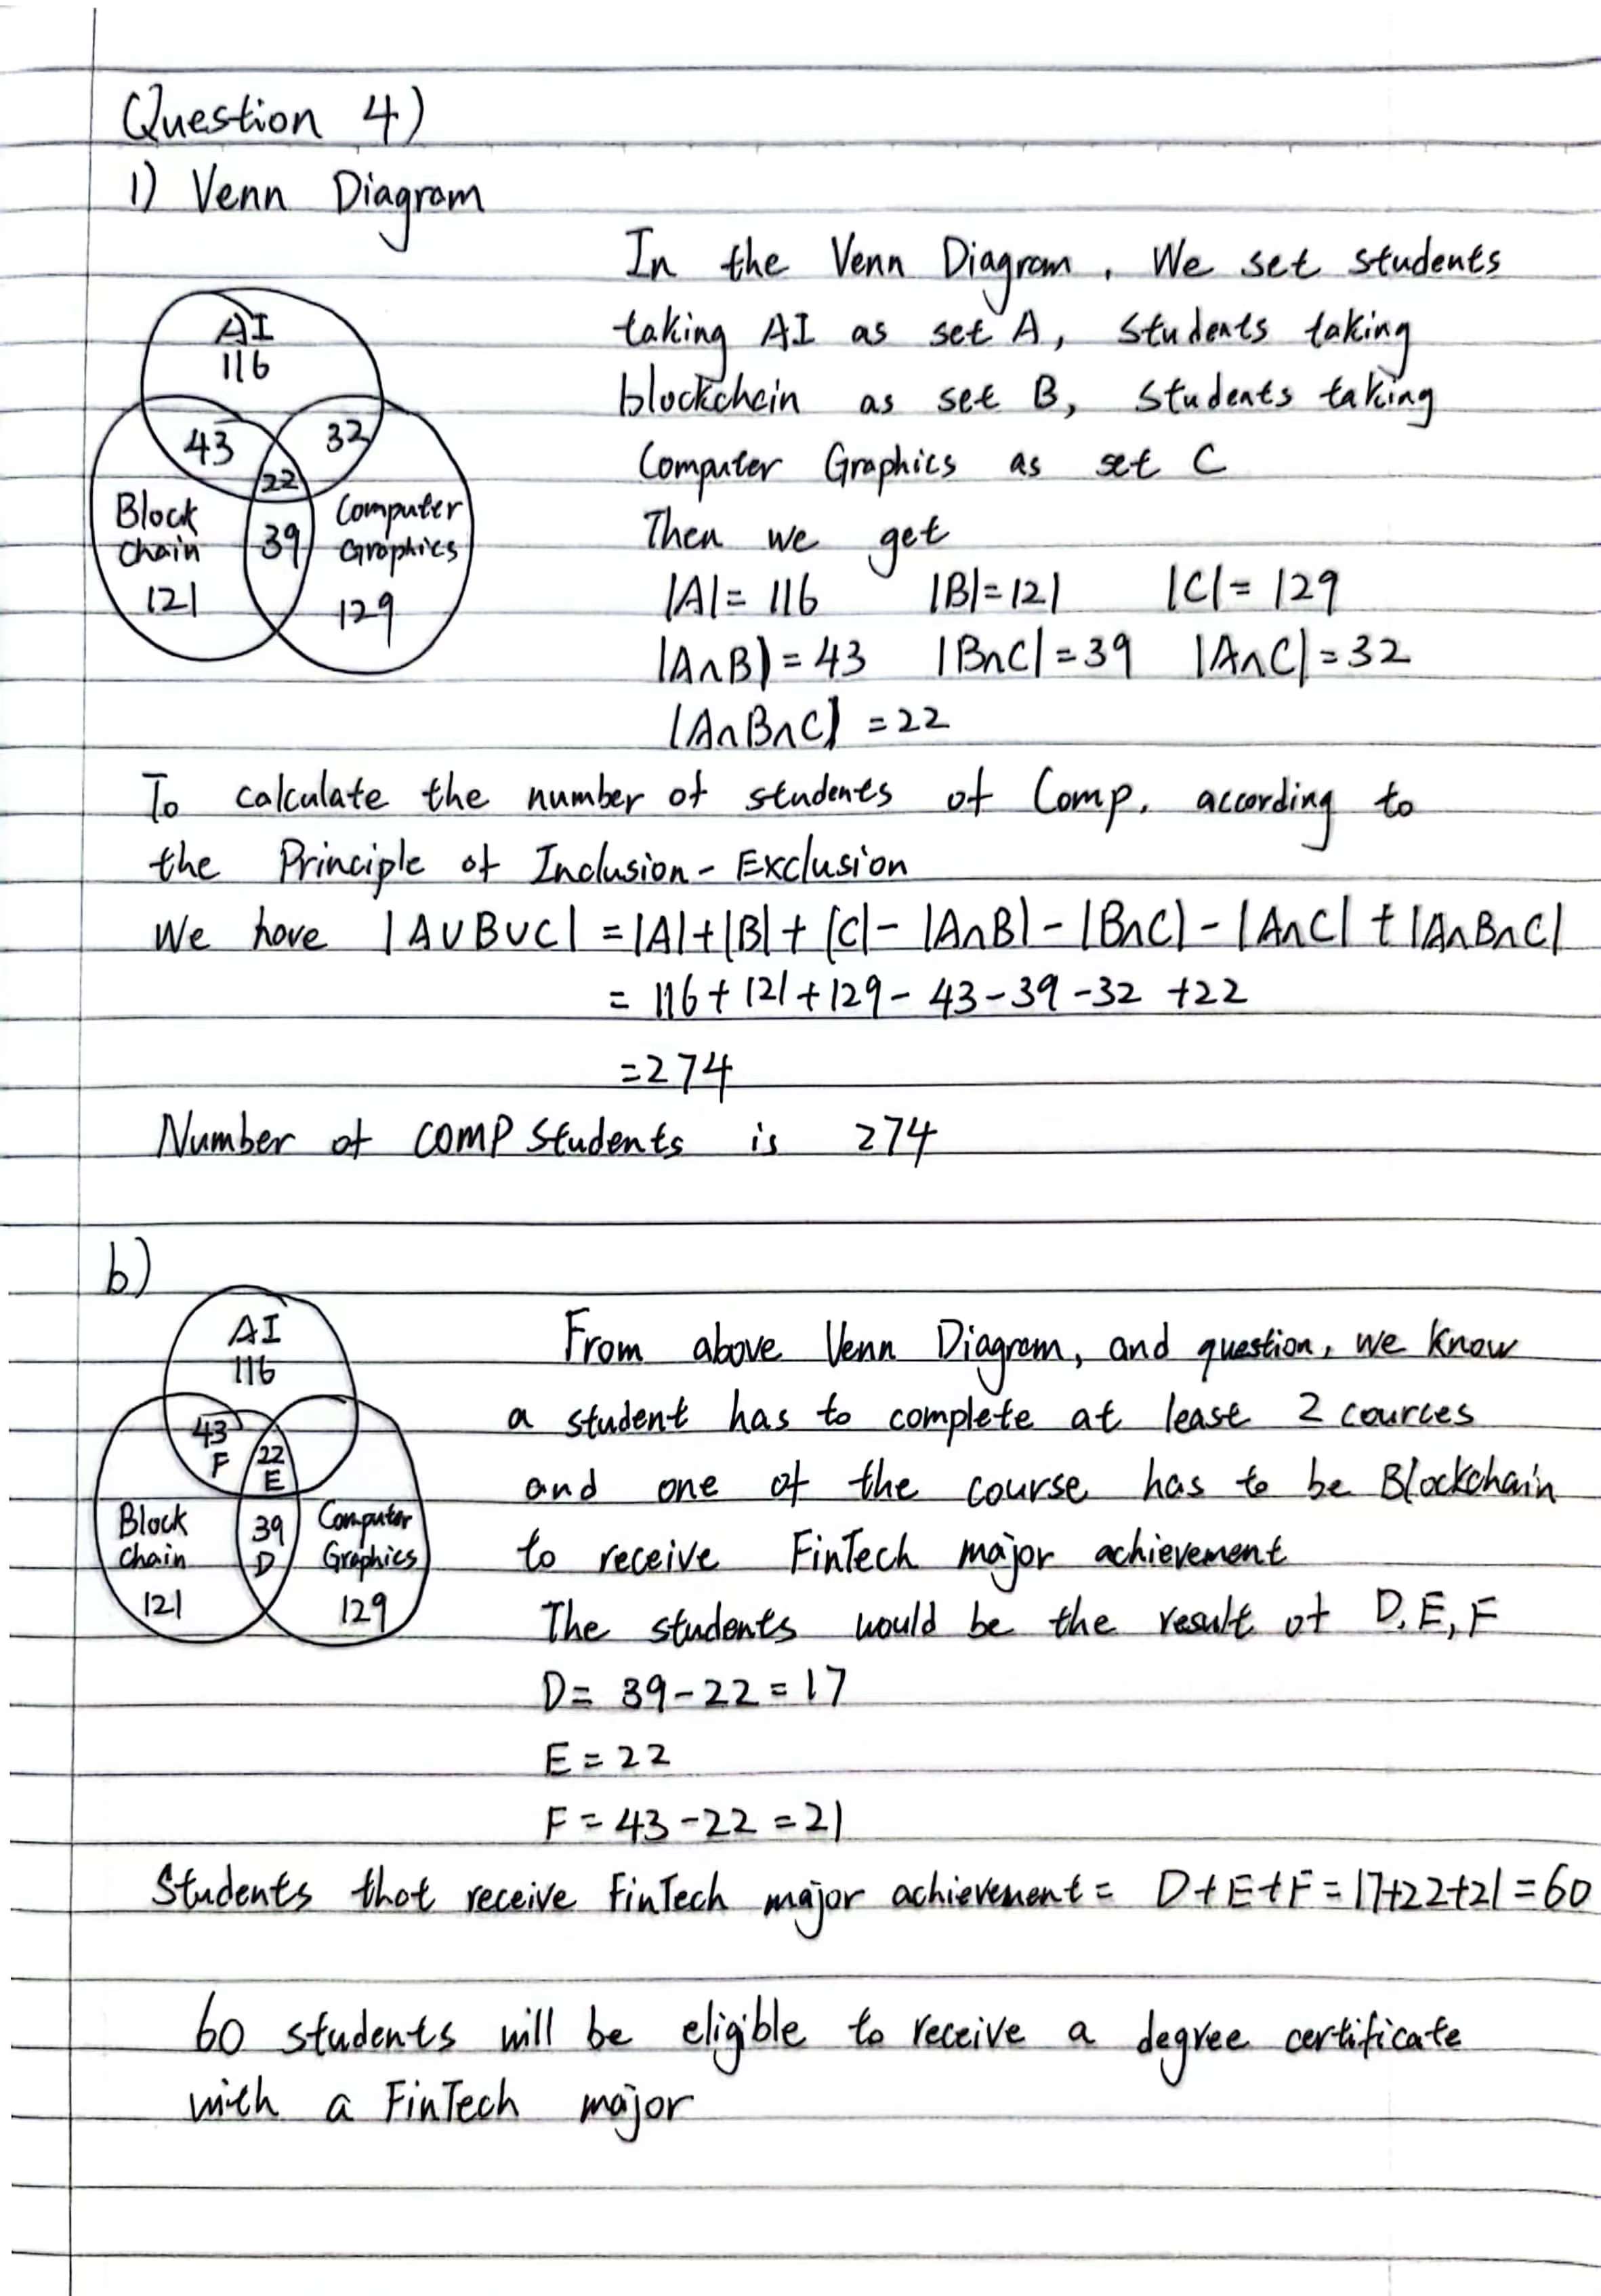 Question 4)
1) Venn Diagram
In the Venn Diagram, We set students
taking AI as set A, Students taking
blockchain as set B, Students taking
Computer Graphics as set C
Then we get
|A| = 116 |B| = 121 |C| = 129
|A∩B| = 43 |B∩C| = 39 |A∩C| = 32
|A∩B∩C| = 22
AI
116
43
32
22
Block
chain
121
39
Computer
Graphics
129
To calculate the number of students of Comp. according to
the Principle of Inclusion-Exclusion
We have |A∪B∪C| = |A|+|B|+|C|-|A∩B|-|B∩C|-|A∩C|+|A∩B∩C|
= 116+121+129-43-39-32+22
=274
Number of COMP Students is 274
b)
AI
116
43
F
22
E
Block
chain
121
39
D
Computer
Graphics
129
From above Venn Diagram, and question, we know
a student has to complete at least 2 cources
and one of the course has to be Blockchain
to receive FinTech major achievement
The students would be the result of D, E, F
D = 39-22 = 17
E = 22
F = 43-22 = 21
Students that receive FinTech major achievement = D+E+F = 17+22+21 = 60
60 students will be eligible to receive a degree certificate
with a FinTech major